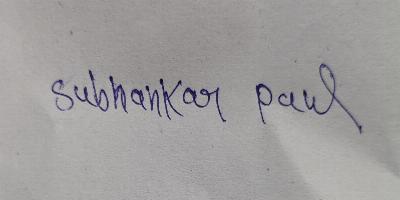 subhankar paul